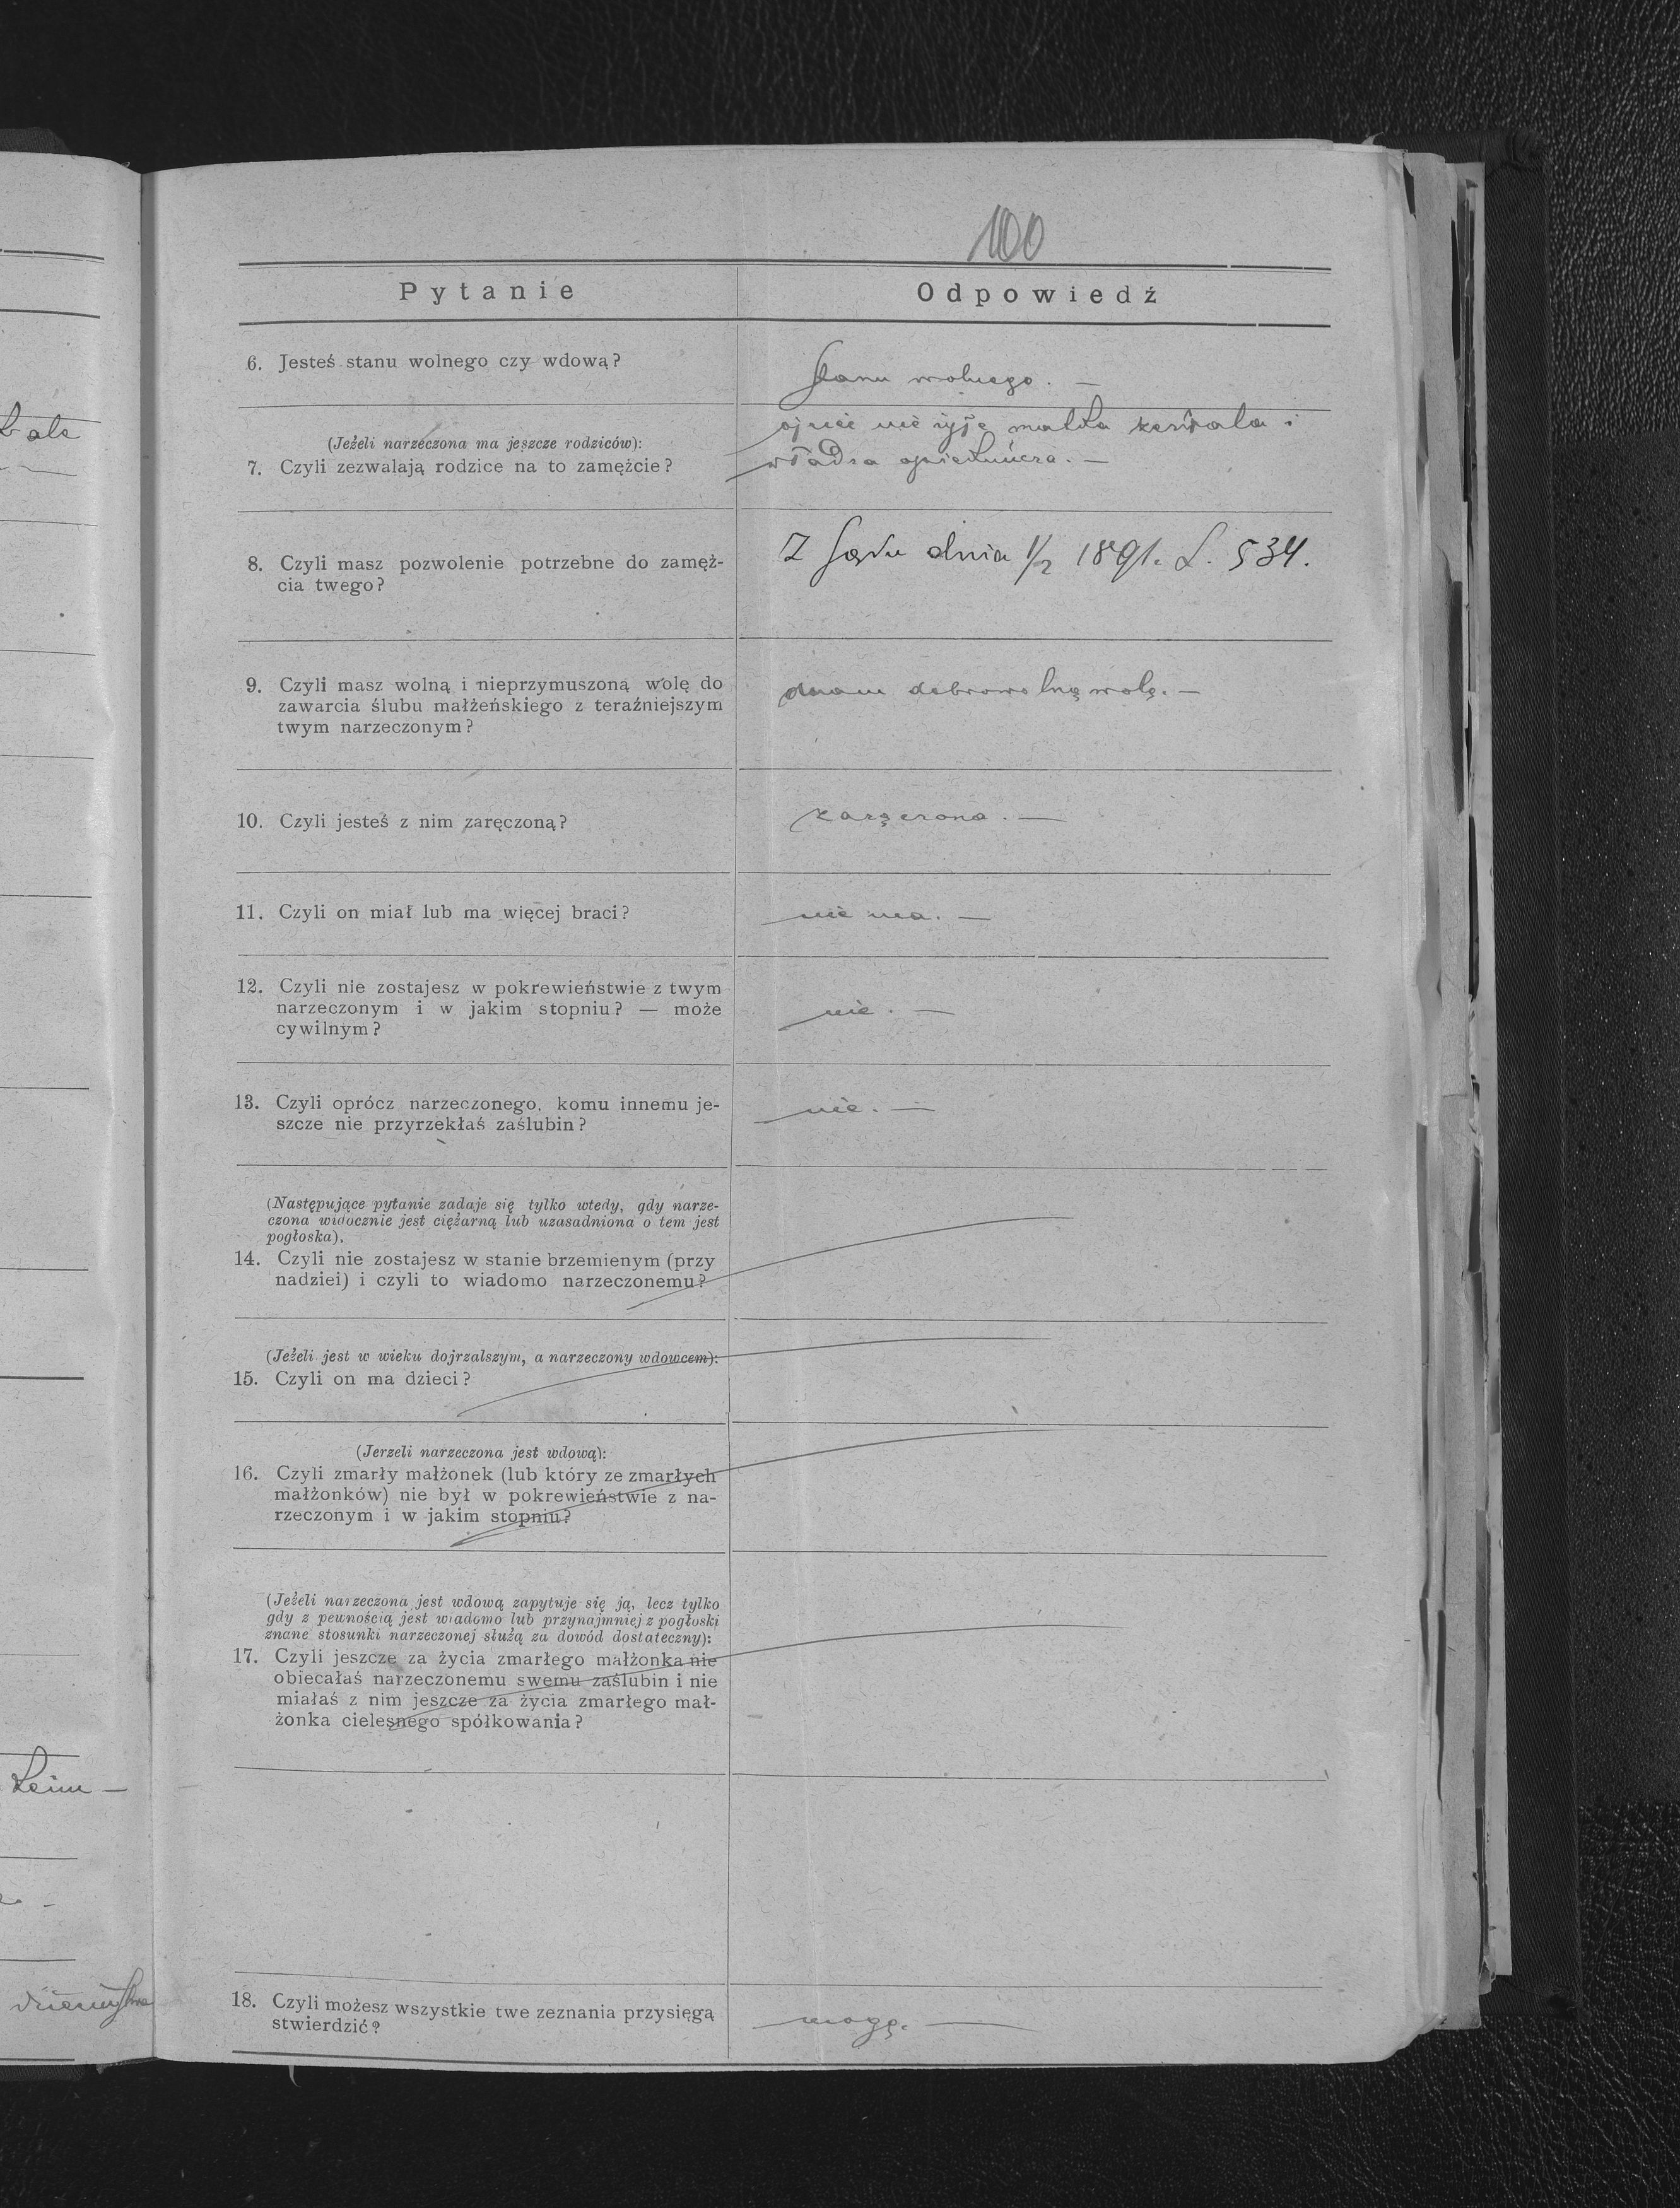 100
Pytanie
Odpowiedź
6. Jesteś stanu wolnego czy wdową?
Stanu wolnego. —
(Jeżeli narzeczona ma jeszcze rodziców):
7. Czyli zezwalają rodzice na to zamężcie?
ojciec nie żyje matka zezwala i
władza opiekuńcza. —
8. Czyli masz pozwolenie potrzebne do zamęż-
cia twego?
Z Sądu dnia 1/2 1891. L. 534.
9. Czyli masz wolną i nieprzymuszoną wolę do
zawarcia ślubu małżeńskiego z teraźniejszym
twym narzeczonym?
mam dobrowolną wolę. —
10. Czyli jesteś z nim zaręczoną?
zaręczona. —
11. Czyli on miał lub ma więcej braci?
nie ma. —
12. Czyli nie zostajesz w pokrewieństwie z twym
narzeczonym i w jakim stopniu? — może
cywilnym?
nie. —
13. Czyli oprócz narzeczonego, komu innemu je-
szcze nie przyrzekłaś zaślubin?
nie. —
(Następujące pytanie zadaje się tylko wtedy, gdy narze-
czona widocznie jest ciężarną lub uzasadniona o tem jest
pogłoska).
14. Czyli nie zostajesz w stanie brzemienym (przy
nadziei) i czyli to wiadomo narzeczonemu?
(Jeżeli jest w wieku dojrzalszym, a narzeczony wdowcem):
15. Czyli on ma dzieci?
(Jerzeli narzeczona jest wdową):
16. Czyli zmarły małżonek (lub który ze zmarłych
małżonków) nie był w pokrewieństwie z na-
rzeczonym i w jakim stopniu?
(Jeżeli narzeczona jest wdową zapytuje się ją, lecz tylko
gdy z pewnością jest wiadomo lub przynajmniej z pogłoski
znane stosunki narzeczonej służą za dowód dostateczny):
17. Czyli jeszcze za życia zmarłego małżonka nie
obiecałaś narzeczonemu swemu zaślubin i nie
miałaś z nim jeszcze za życia zmarłego mał-
żonka cielesnego spółkowania?
18. Czyli możesz wszystkie twe zeznania przysięgą
stwierdzić?
mogę. —